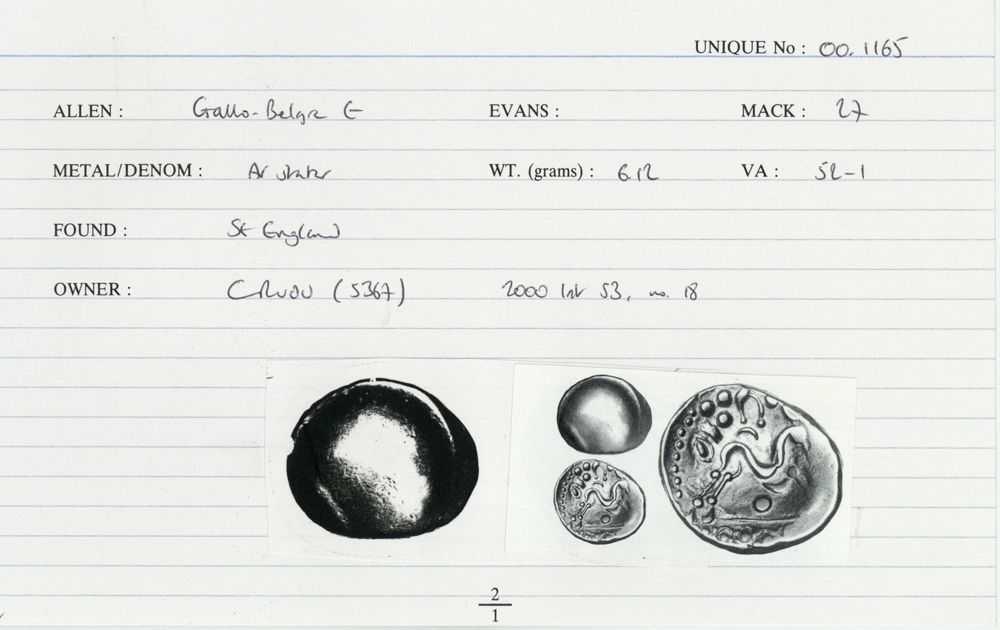 UNIQUE No : 00.1165
ALLEN : Gallo-Belgic E EVANS : MACK : 27
METAL/DENOM : AV stater WT. (grams) : 6.12 VA : 52-1
FOUND : SE England
OWNER : CRUDU (5367) 2000 list 53, no. 18
2
1